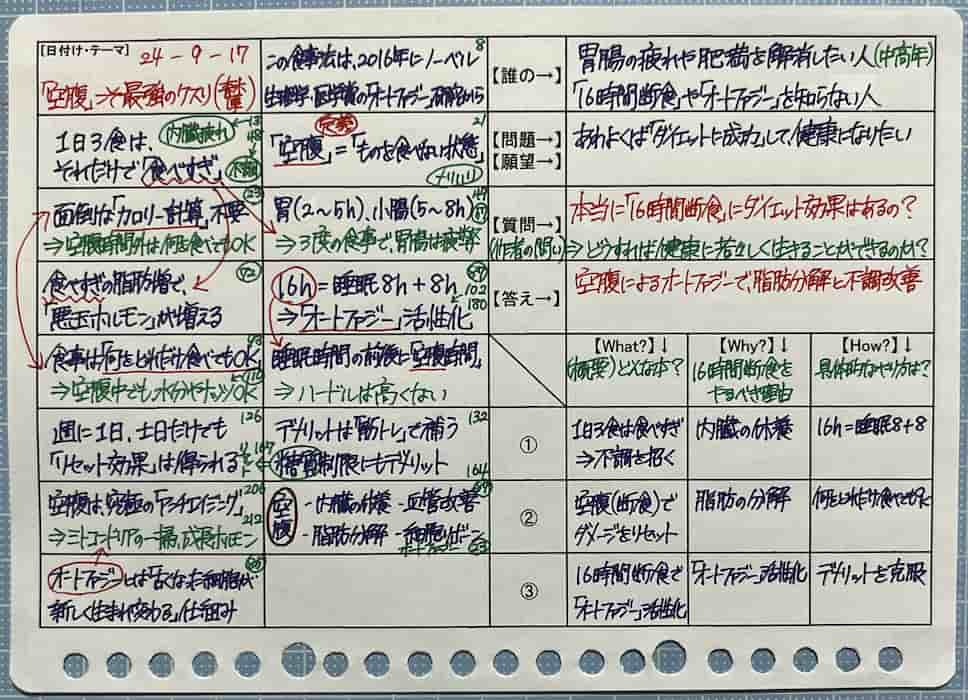 【日付け・テーマ】 24-9-17
「空腹」⇒最強のクスリ
1日3食は、 内臓疲れ ←13
それだけで「食べすぎ」 48 不調
23
面倒な「カロリー計算」不要
⇒空腹時間外は何を食べてもOK
72
食べすぎの脂肪増で、
「悪玉ホルモン」が増える
93
食事は「何をどれだけ食べてもOK」
⇒空腹中でも、水分やナッツOK ←110
週に1日、土日だけでも 126
「リセット効果」は得られる 167
空腹は、究極の「アンチエイジング」 206
⇒ミトコンドリアの一掃、成長ホルモン 212
オートファジーとは「古くなった細胞が
新しく生まれ変わる」仕組み
8
この食事法は、2016年にノーベル
生理学・医学賞の「オートファジー」研究から
定義 21
「空腹」=「ものを食べない状態」
胃(2〜5h)、小腸(5〜8h)
⇒3度の食事で、胃腸は疲弊
16h=睡眠8h+8h 102
⇒「オートファジー」活性化 180
睡眠時間の前後に「空腹時間」
⇒ハードルは高くない
デメリットは「筋トレ」で補う 132
糖質制限にもデメリット 164
空腹 -内臓の休養 -血管改善
-脂肪分解 -細胞リボーン
オートファジー
【誰の→】 胃腸の疲れや肥満を解消したい人(中高年)
「16時間断食」や「オートファジー」を知らない人
【問題→】 あわよくば「ダイエットに成功」して、健康になりたい
【願望→】
【質問→】 本当に「16時間断食」にダイエット効果はあるの?
(作者の問い) ⇒どうすれば健康に若々しく生きることができるのか?
【答え→】 空腹によるオートファジーで、脂肪分解と不調改善
【What?】↓ 【Why?】↓ 【How?】↓
(概要)どんな本? 16時間断食を
やるべき理由 具体的なやり方は?
① 1日3食は食べすぎ
⇒不調を招く 内臓の休養 16h=睡眠8+8
② 空腹(断食)で
ダメージをリセット 脂肪の分解 何をどれだけ食べてもOK
③ 16時間断食で
「オートファジー」活性化 「オートファジー」活性化 デメリットを克服